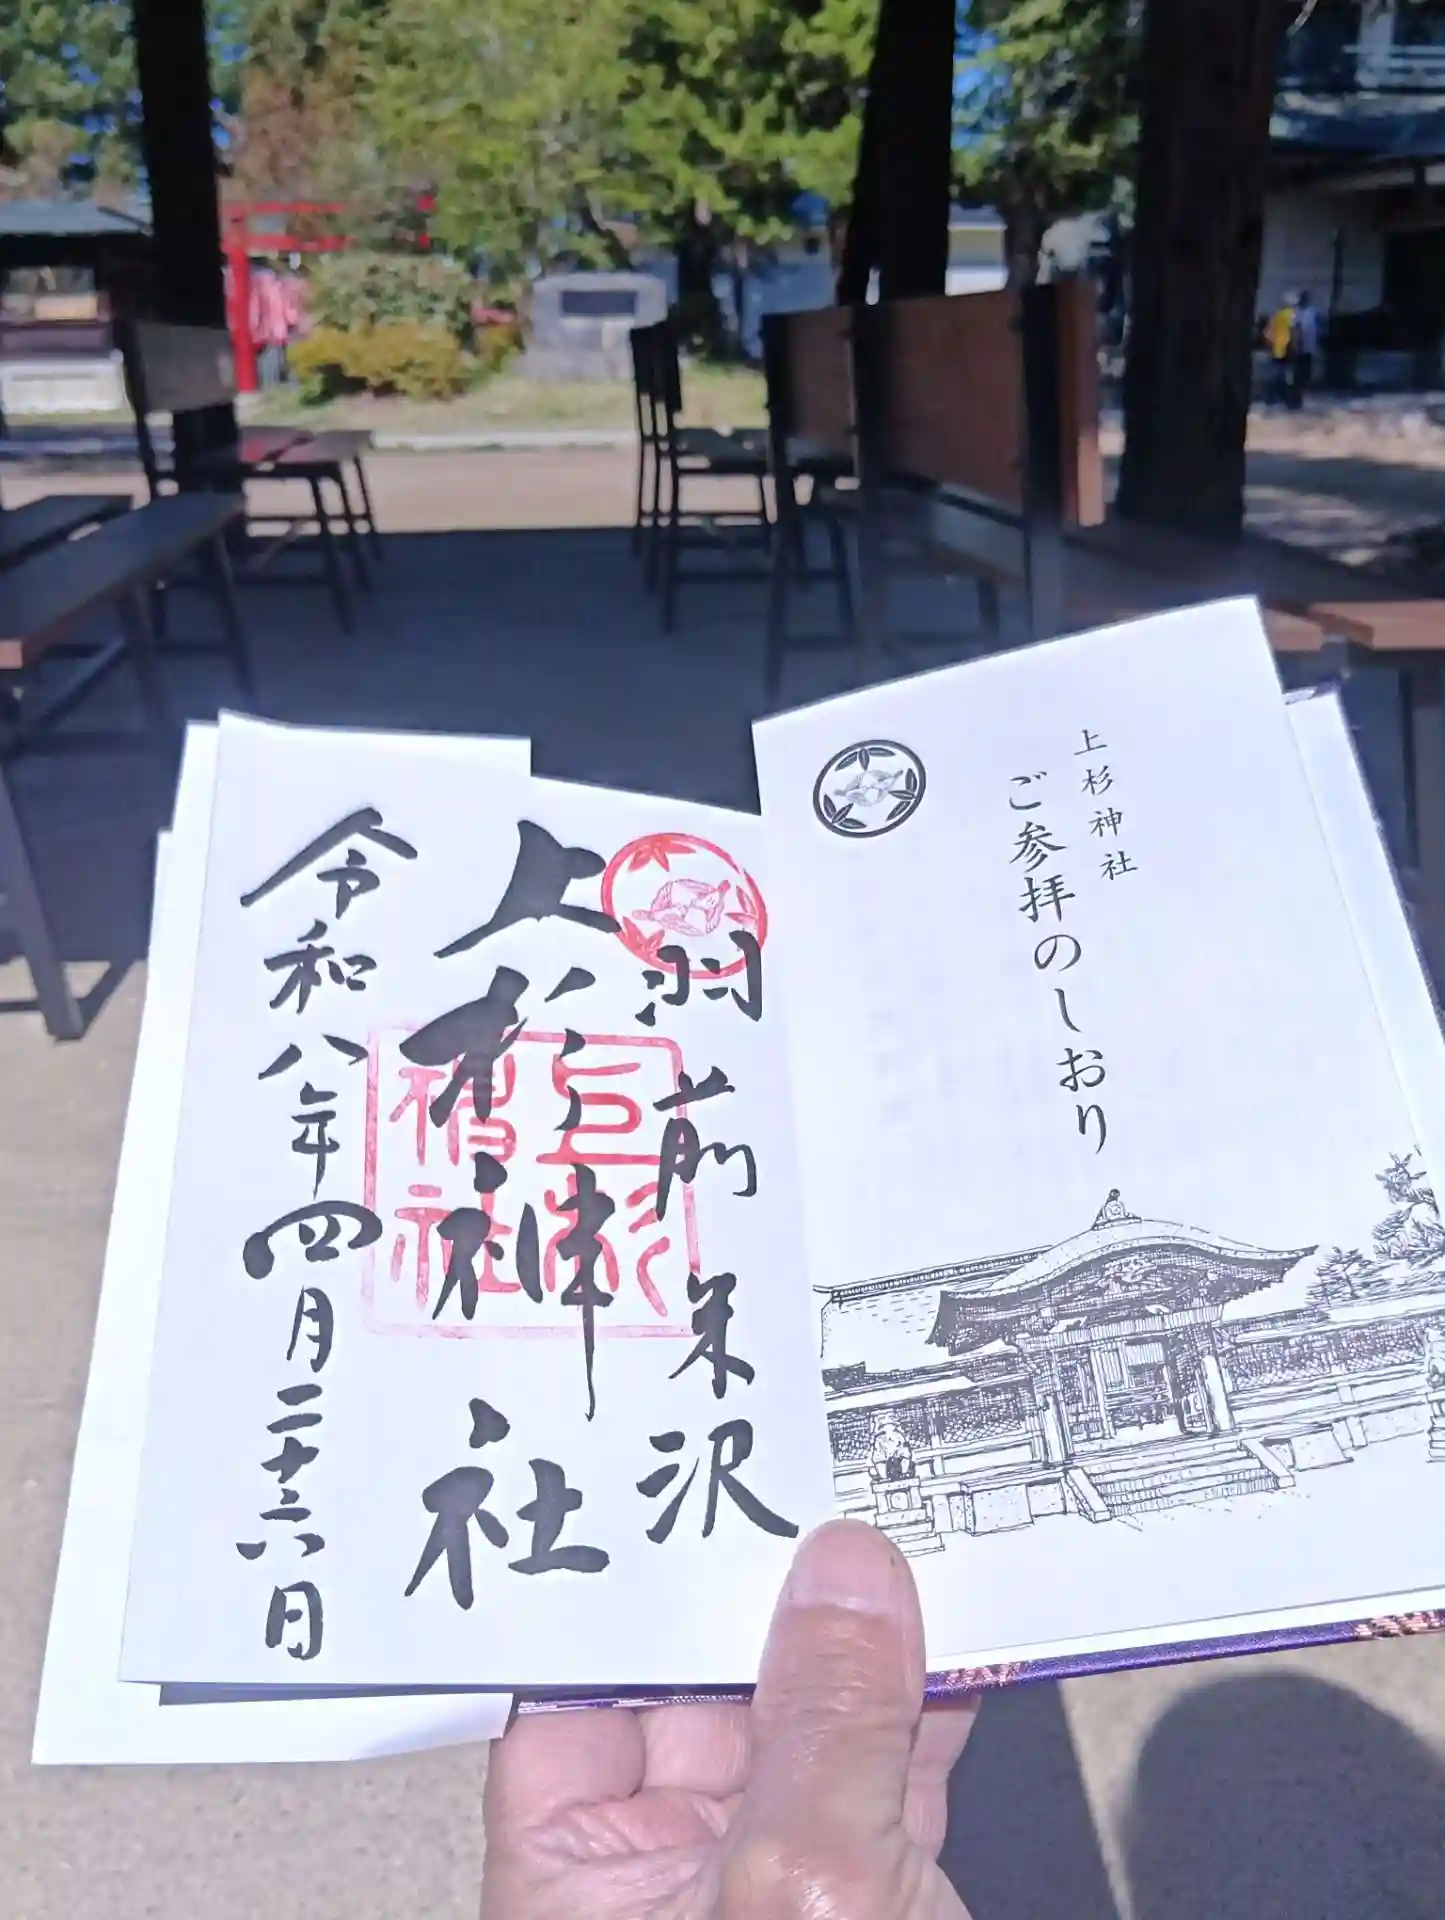 上杉神社
ご参拝のしおり
羽前米沢
上杉神社
上杉
神社
令和八年四月二十六日